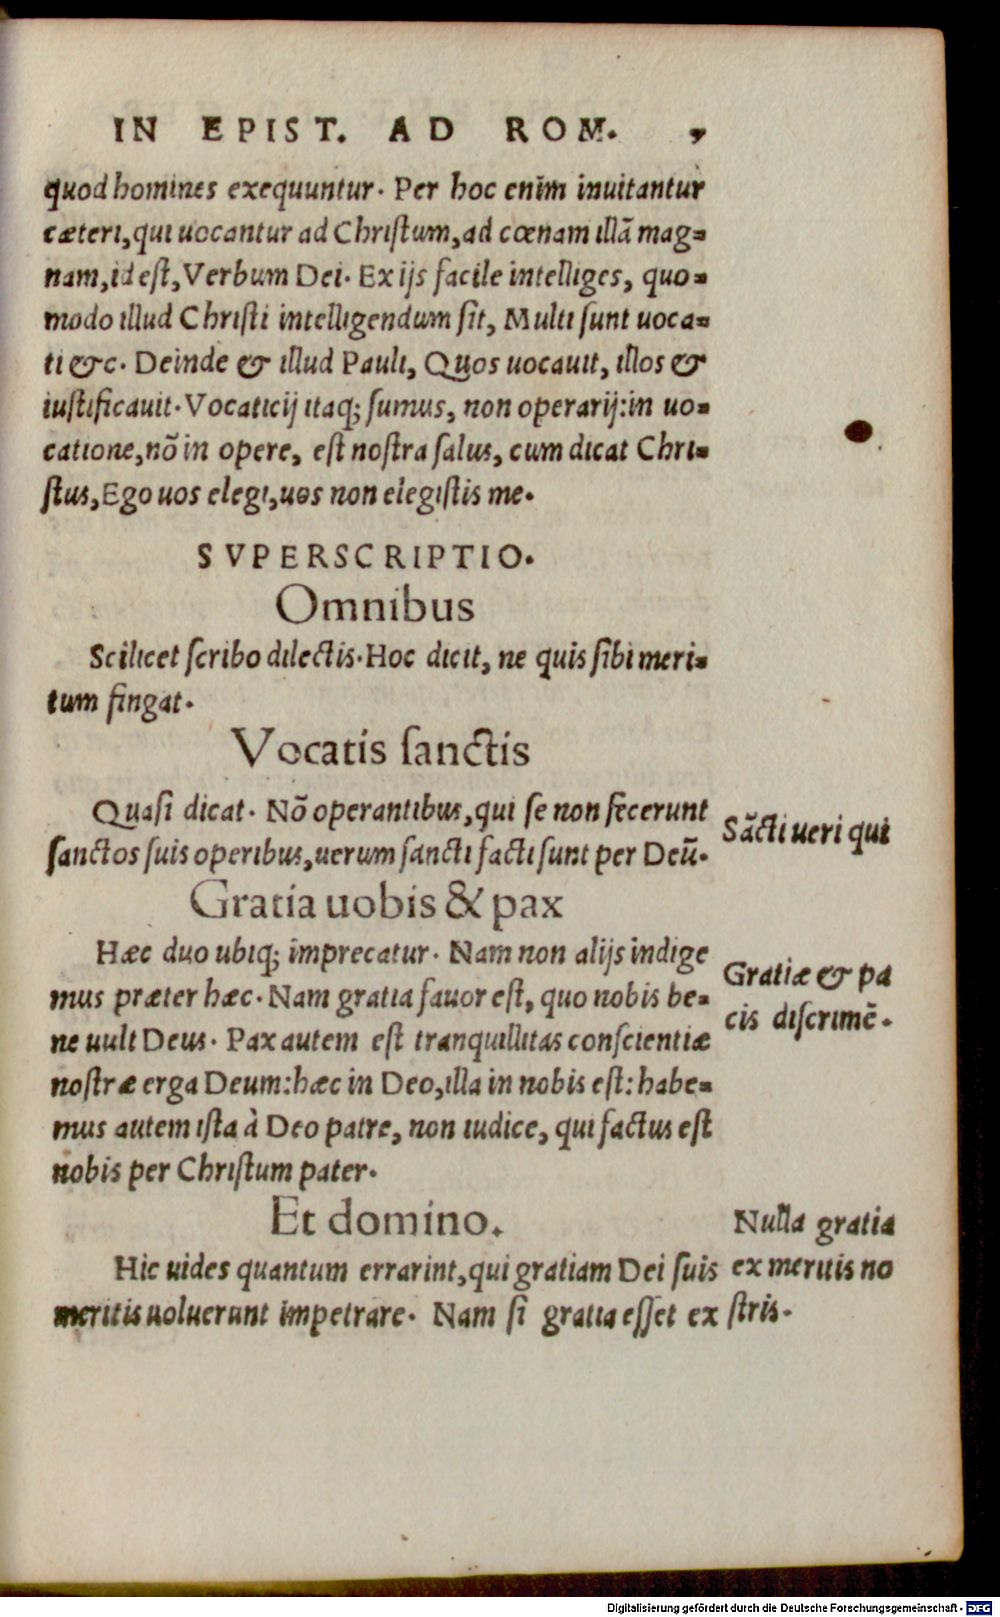 IN EPIST. AD ROM. 9
quod homines exequuntur. Per hoc enim inuitantur
cæteri, qui uocantur ad Christum, ad cœnam illã mag=
nam, id est, Verbum Dei. Ex ijs facile intelliges, quo=
modo illud Christi intelligendum sit, Multi sunt uoca=
ti &c. Deinde & illud Pauli, Quos uocauit, illos &
iustificauit. Vocaticij itaq; sumus, non operarij: in uo=
catione, nõ in opere, est nostra salus, cum dicat Chri=
stus, Ego uos elegi, uos non elegistis me.
SVPERSCRIPTIO.
Omnibus
Scilicet scribo dilectis. Hoc dicit, ne quis sibi meri=
tum fingat.
Vocatis sanctis
Quasi dicat. Nõ operantibus, qui se non fecerunt
sanctos suis operibus, uerum sancti facti sunt per Deũ.
Sãcti ueri qui
Gratia uobis & pax
Hæc duo ubiq; imprecatur. Nam non alijs indige
mus præter hæc. Nam gratia fauor est, quo nobis be=
ne uult Deus. Pax autem est tranquillitas conscientiæ
nostræ erga Deum: hæc in Deo, illa in nobis est: habe=
mus autem ista à Deo patre, non iudice, qui factus est
nobis per Christum pater.
Gratiæ & pa
cis discrimẽ.
Et domino.
Hic uides quantum errarint, qui gratiam Dei suis
meritis uoluerunt impetrare. Nam si gratia esset ex
Nulla gratia
ex meritis no
stris.
Digitalisierung gefördert durch die Deutsche Forschungsgemeinschaft - DFG